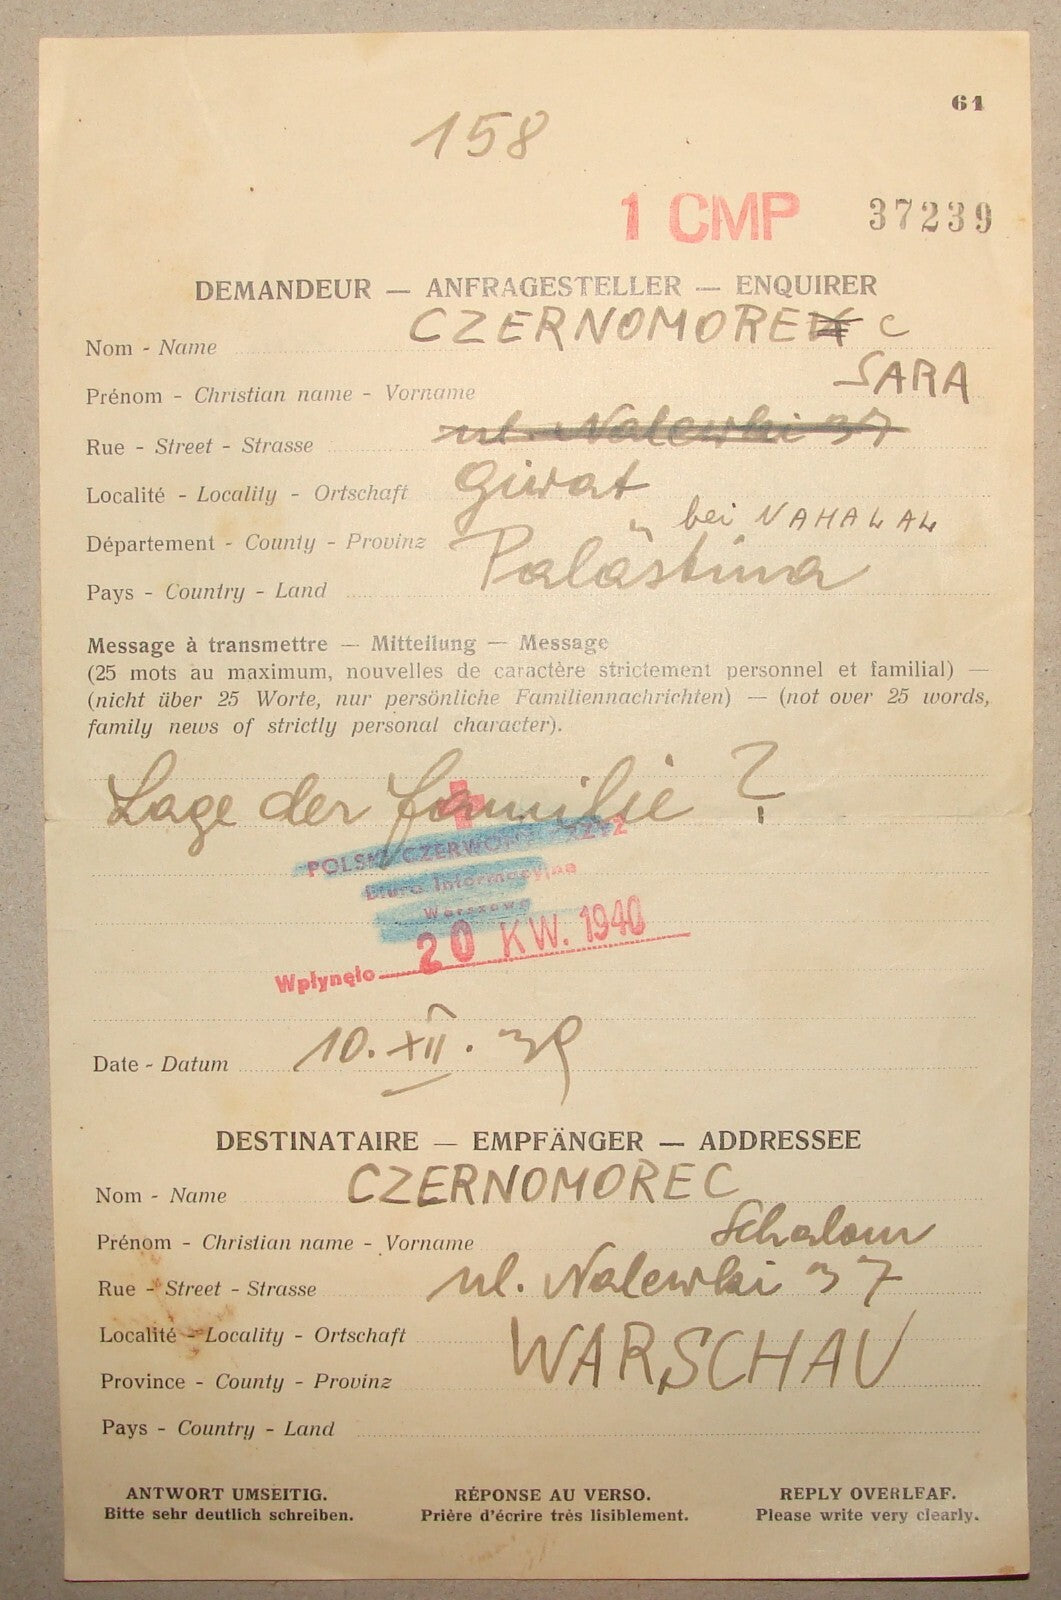 61
158
1 CMP 37239
DEMANDEUR — ANFRAGESTELLER — ENQUIRER
Nom - Name CZERNOMOREC
Prénom - Christian name - Vorname SARA
Rue - Street - Strasse ul. Nalewki 37
Localité - Locality - Ortschaft Giwat
Département - County - Provinz bei NAHALAL
Pays - Country - Land Palästina
Message à transmettre — Mitteilung — Message
(25 mots au maximum, nouvelles de caractère strictement personnel et familial) —
(nicht über 25 Worte, nur persönliche Familiennachrichten) — (not over 25 words,
family news of strictly personal character).
Lage der familie ?
POLSKI CZERWONY KRZYŻ
Biuro Informacyjne
Warszawa
Wpłynęło 20 KW. 1940
Date - Datum 10. XII. 39
DESTINATAIRE — EMPFÄNGER — ADDRESSEE
Nom - Name CZERNOMOREC
Prénom - Christian name - Vorname Schalom
Rue - Street - Strasse ul. Nalewki 37
Localité - Locality - Ortschaft WARSCHAU
Province - County - Provinz
Pays - Country - Land
ANTWORT UMSEITIG. RÉPONSE AU VERSO. REPLY OVERLEAF.
Bitte sehr deutlich schreiben. Prière d'écrire très lisiblement. Please write very clearly.